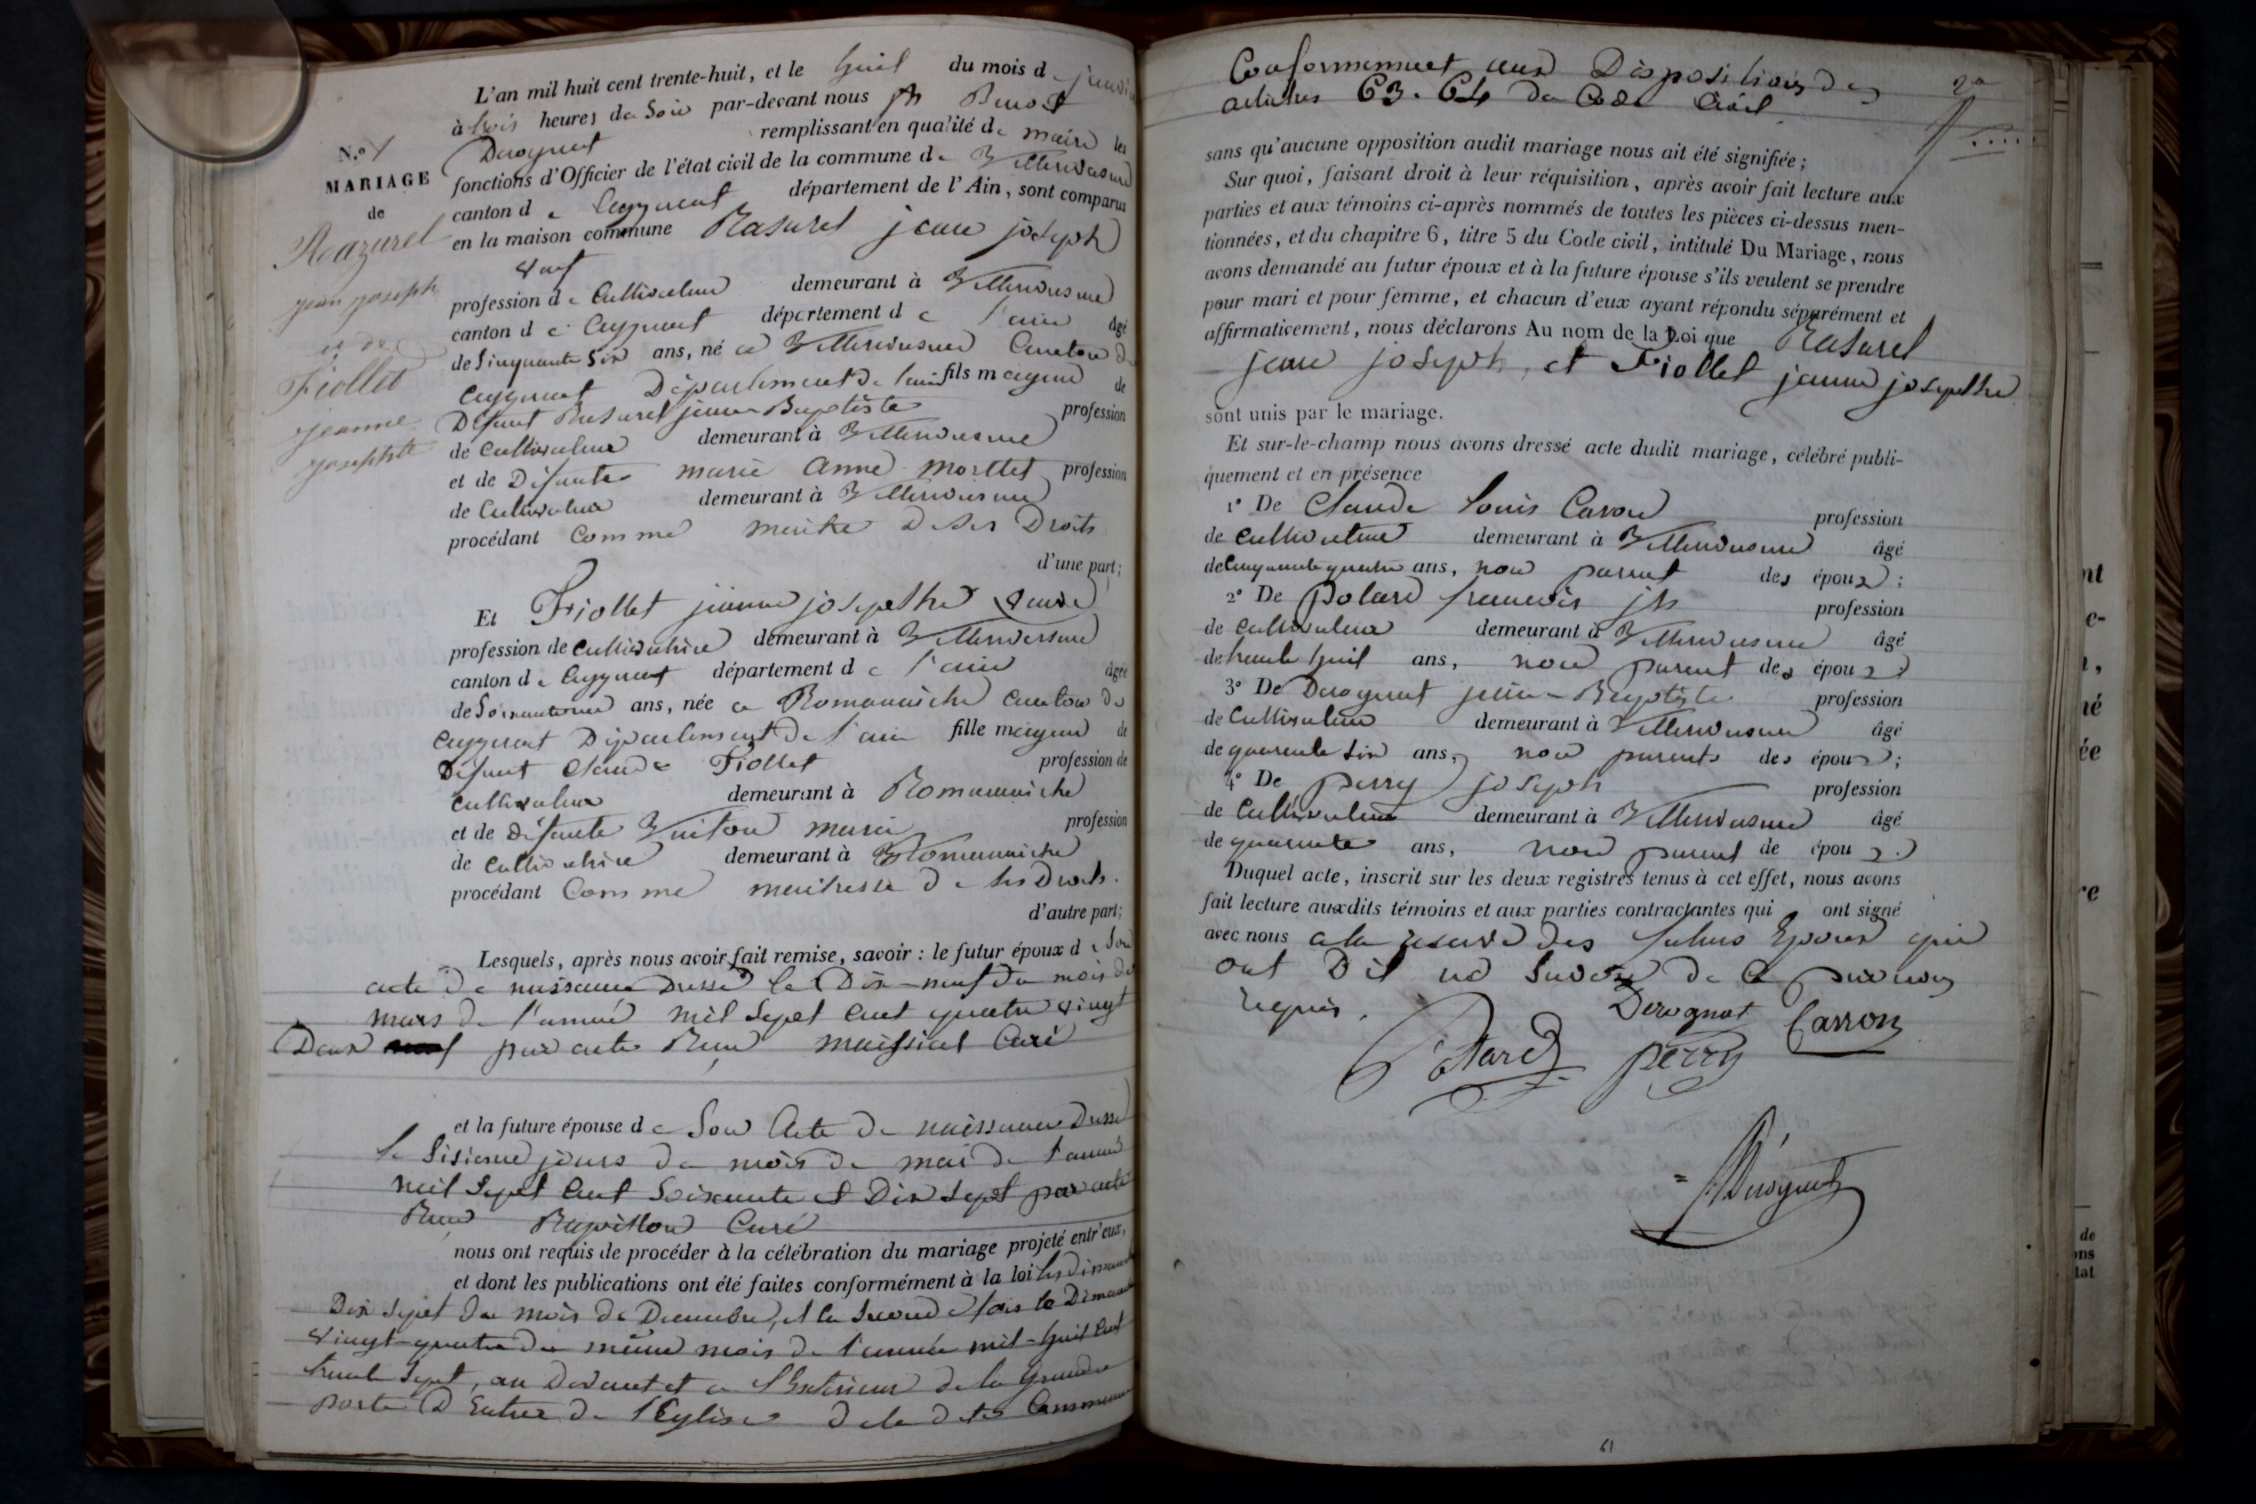 N.º 1
MARIAGE
de
Razurel
jean joseph
et de
Fiollet
jeanne
josephte
L'an mil huit cent trente-huit, et le huit du mois de janvier
à trois heures du Soir par-devant nous jh Benoit
Derognat remplissant en qualité de maire les
fonctions d'Officier de l'état civil de la commune de Villereversure
canton de Ceyzeriat département de l'Ain, sont comparus
en la maison commune Rasurel jean joseph
veuf
profession de Cultivateur demeurant à Villereversure
canton de Ceyzeriat département de l'ain âgé
de Sinquante Six ans, né a Villereversure Canton de
Ceyzeriat Département de l'ain fils majeur de
Défunt Rasurel jean Baptiste profession
de Cultivateur demeurant à Villereversure
et de Défunte marie anne morttet profession
de Cultivateur demeurant à Villereversure
procédant Comme maitre De Ses Droits
d'une part;
Et Fiollet jeanne josepethe veuve
profession de Cultivatrice demeurant à Villereversure
canton de Ceyzeriat département de l'ain âgée
de Soixante un ans, née a Romanaiche Canton de
Ceyzeriat Département de l'ain fille majeure de
Défunt Claude Fiollet profession de
Cultivateur demeurant à Romanaiche
et de Défunte Vuiton marie profession
de Cultivatrice demeurant à Romanaiche
procédant Comme maitresse De Ses Droits.
d'autre part;
Lesquels, après nous avoir fait remise, savoir : le futur époux de Son
acte De naissance Dressé le Dix-neuf Du mois de
mars de l'année mil Sept Cent quatre vingt
Deux par acte Reçu maissiat Curé
et la future épouse de Son Acte De naissance Dressé
le Sisieme jours du mois De mai De l'année
mil Sept Cent Soixante et Dix Sept par acte
Reçu Rapillon Curé
nous ont requis de procéder à la célébration du mariage projeté entr'eux,
et dont les publications ont été faites conformément à la loi les dimanche
Dix Sept du mois De Decembre, et la Seconde fois le Dimanche
vingt-quatre du même mois de l'année mil-huit Cent
trente Sept, au Devant et a l'Exterieur de la Grande
porte D Entrée De l'Eglise de la dite Commune
Conformement aux Dispositions des
articles 63. 64 du Code Civil
2e
sans qu'aucune opposition audit mariage nous ait été signifiée;
Sur quoi, faisant droit à leur réquisition, après avoir fait lecture aux
parties et aux témoins ci-après nommés de toutes les pièces ci-dessus men-
tionnées, et du chapitre 6, titre 5 du Code civil, intitulé Du Mariage, nous
avons demandé au futur époux et à la future épouse s'ils veulent se prendre
pour mari et pour femme, et chacun d'eux ayant répondu séparément et
affirmativement, nous déclarons Au nom de la Loi que Rasurel
jean joseph, et Fiollet jeanne josepthe
sont unis par le mariage.
Et sur-le-champ nous avons dressé acte dudit mariage, célébré publi-
quement et en présence
1º De Claude Louis Caron profession
de Cultivateur demeurant à Villereversure âgé
de Cinquante quatre ans, non parent des époux;
2º De polard francois jh profession
de Cultivateur demeurant à Villereversure âgé
de trente huit ans, non parent des époux
3º De Derognat jean-Baptiste profession
de Cultivateur demeurant à Villereversure âgé
de quarente Six ans, non parents des époux;
4º De perry joseph profession
de Cultivateur demeurant à Villereversure âgé
de quarente ans, non parent de époux.
Duquel acte, inscrit sur les deux registres tenus à cet effet, nous avons
fait lecture auxdits témoins et aux parties contractantes qui ont signé
avec nous a la reserve des futurs Epoux qui
ont Dit ne Savoir de ce
requis.
Derognat Carron
Polard perry
Derognat
61